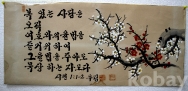 복 있는 사람은
오직
여호와의 율법을
즐거워하여
그 율법을 주야로
묵상하는 자로다
시편 1:1-2
kobay